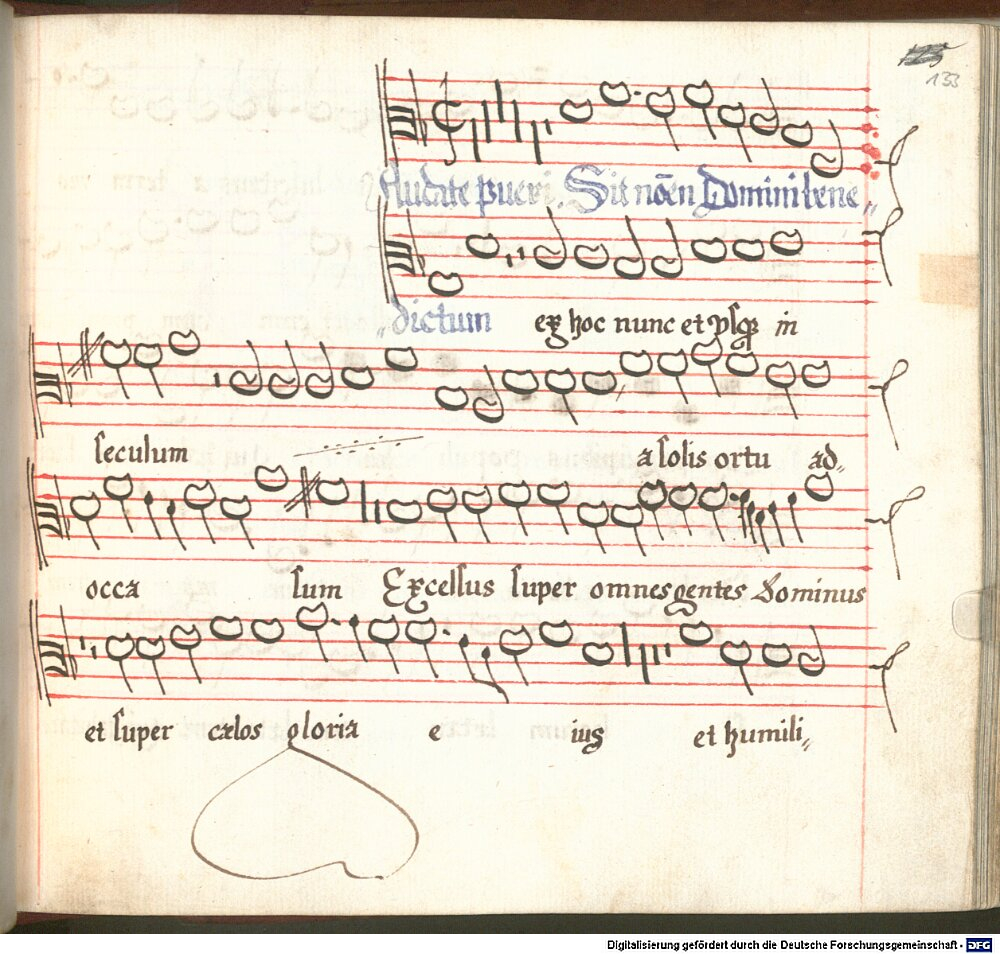 133
Laudate pueri. Sit nōen Domini bene„
„dictum ex hoc nunc et vsqꝫ in
seculum a solis ortu ad„
occa sum Excelsus super omnes gentes Dominus
et super cælos gloria e ius et humili„
Digitalisierung gefördert durch die Deutsche Forschungsgemeinschaft - DFG